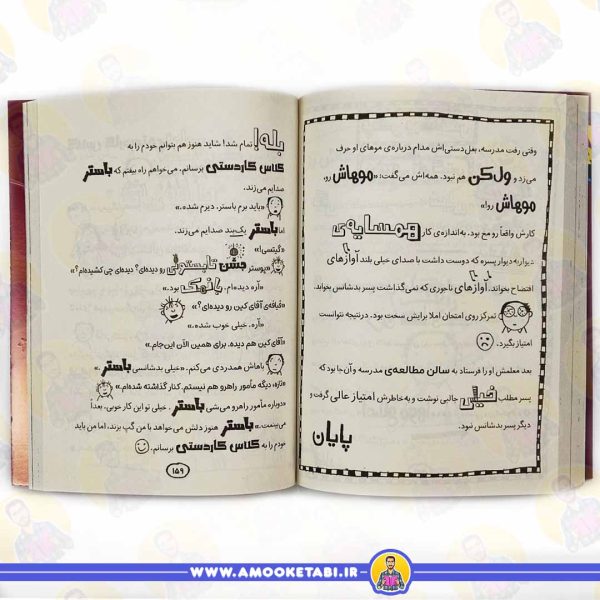 وقتی رفت مدرسه، بغل‌دستی‌اش مدام درباره‌ی موهای او حرف
می‌زد و ول‌کن هم نبود. همه‌اش می‌گفت: «موهاش رو،
موهاش رو!»
کارش واقعاً رو مخ بود. به‌اندازه‌ی کار همسایه‌ی
دیواربه‌دیوار پسره که دوست داشت با صدای خیلی بلند آوازهای
افتضاح بخواند. آوازهای ناجوری که نمی‌گذاشت پسر بدشانس بخوابد.
تمرکز روی امتحان املا برایش سخت بود. درنتیجه نتوانست
امتیاز بگیرد.
بعد معلمش او را فرستاد به سالن مطالعه‌ی مدرسه و آن‌جا بود که
پسر مطلب خیلی جالبی نوشت و به خاطرش امتیاز عالی گرفت و
دیگر پسر بدشانس نبود.
پایان
بله! تمام شد! شاید هنوز هم بتوانم خودم را به
کلاس کاردستی برسانم. می‌خواهم راه بیفتم که باستر
صدایم می‌زند.
«باید برم باستر. دیرم شده.»
اما باستر یک‌بند صدایم می‌زند.
«گیتسی!»
«پوستر جشن تابستونی رو دیده‌ای؟ دیده‌ای چی کشیده‌ام؟»
«آره دیده‌ام. بانمک بود.»
«قیافه‌ی آقای کین رو دیده‌ای؟»
«آره. خیلی خوب شده.»
«آقای کین هم دیده. برای همین الآن این‌جام.»
باهاش همدردی می‌کنم. «خیلی بدشانسی باستر.»
«تازه، دیگه مأمور راهرو هم نیستم. کنار گذاشته شده‌ام.»
«دوباره مأمور راهرو می‌شی باستر. خیلی تو این کار خوبی. بعداً
می‌بینمت.» باستر هنوز دلش می‌خواهد با من گپ بزند، اما من باید
خودم را به کلاس کاردستی برسانم.
۱۵۹
WWW.AMOOKETABI.IR